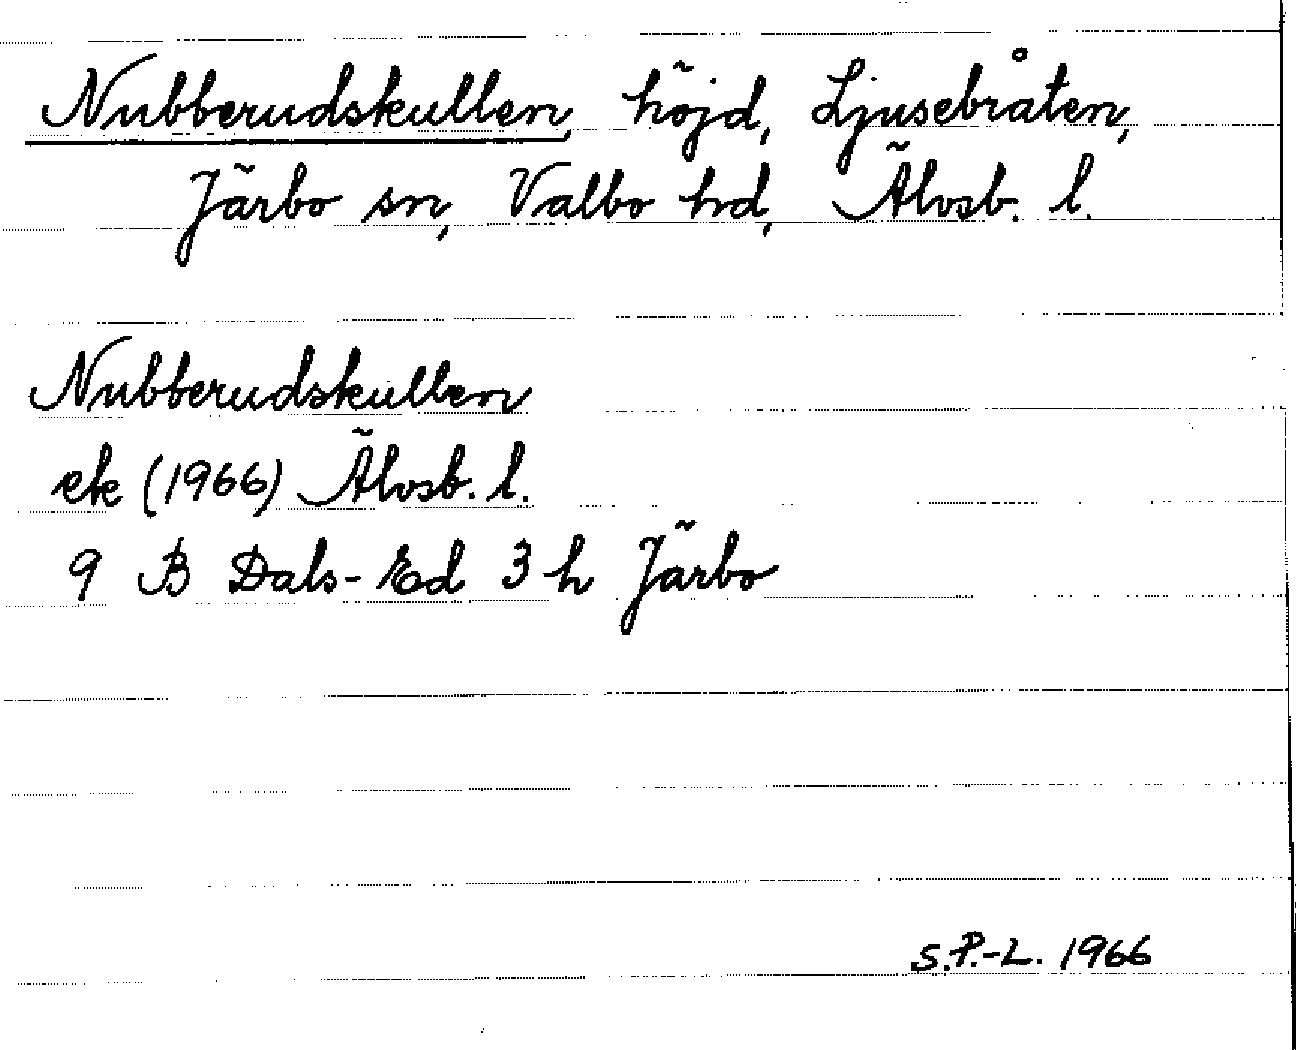 Nubberudskullen, höjd, Ljusebråten,
Järbo sn, Valbo hd, Älvsb. l.
Nubberudskullen
ek (1966) Älvsb. l.
9 B Dals-Ed 3 h Järbo
S.P.-L. 1966